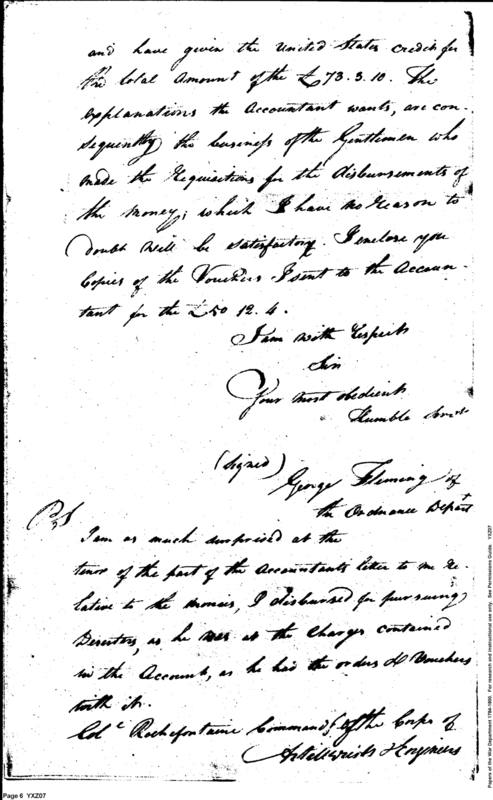 and have given the United States credit for
the total Amount of the £73.3.10. The
explanations the Accountant wants, are con-
sequently the business of the Gentlemen who
made the requisitions for the disbursements of
the money; which I have no reason to
doubt will be satisfactory. I enclose you
Copies of the Vouchers I sent to the Accoun-
tant for the £50 12.4.
I am with respect
Sir
Your most obedient
Humble Servt
(signed)
George Fleming of
the Ordnance Depart
PS
I am as much surprised at the
tenor of the part of the Accountants letter to me re-
lative to the monies, I disbursed for pursuing
Deserters, as he was at the Charges contained
in the Account, as he had the orders & Vouchers
with it.
Col Rochefontaine Command of the Corps of
Artillerists & Engineers
Page 6 YXZ07
Papers of the War Department 1784-1800. For research and instructional use only. See Permissions Guide. YXZ07